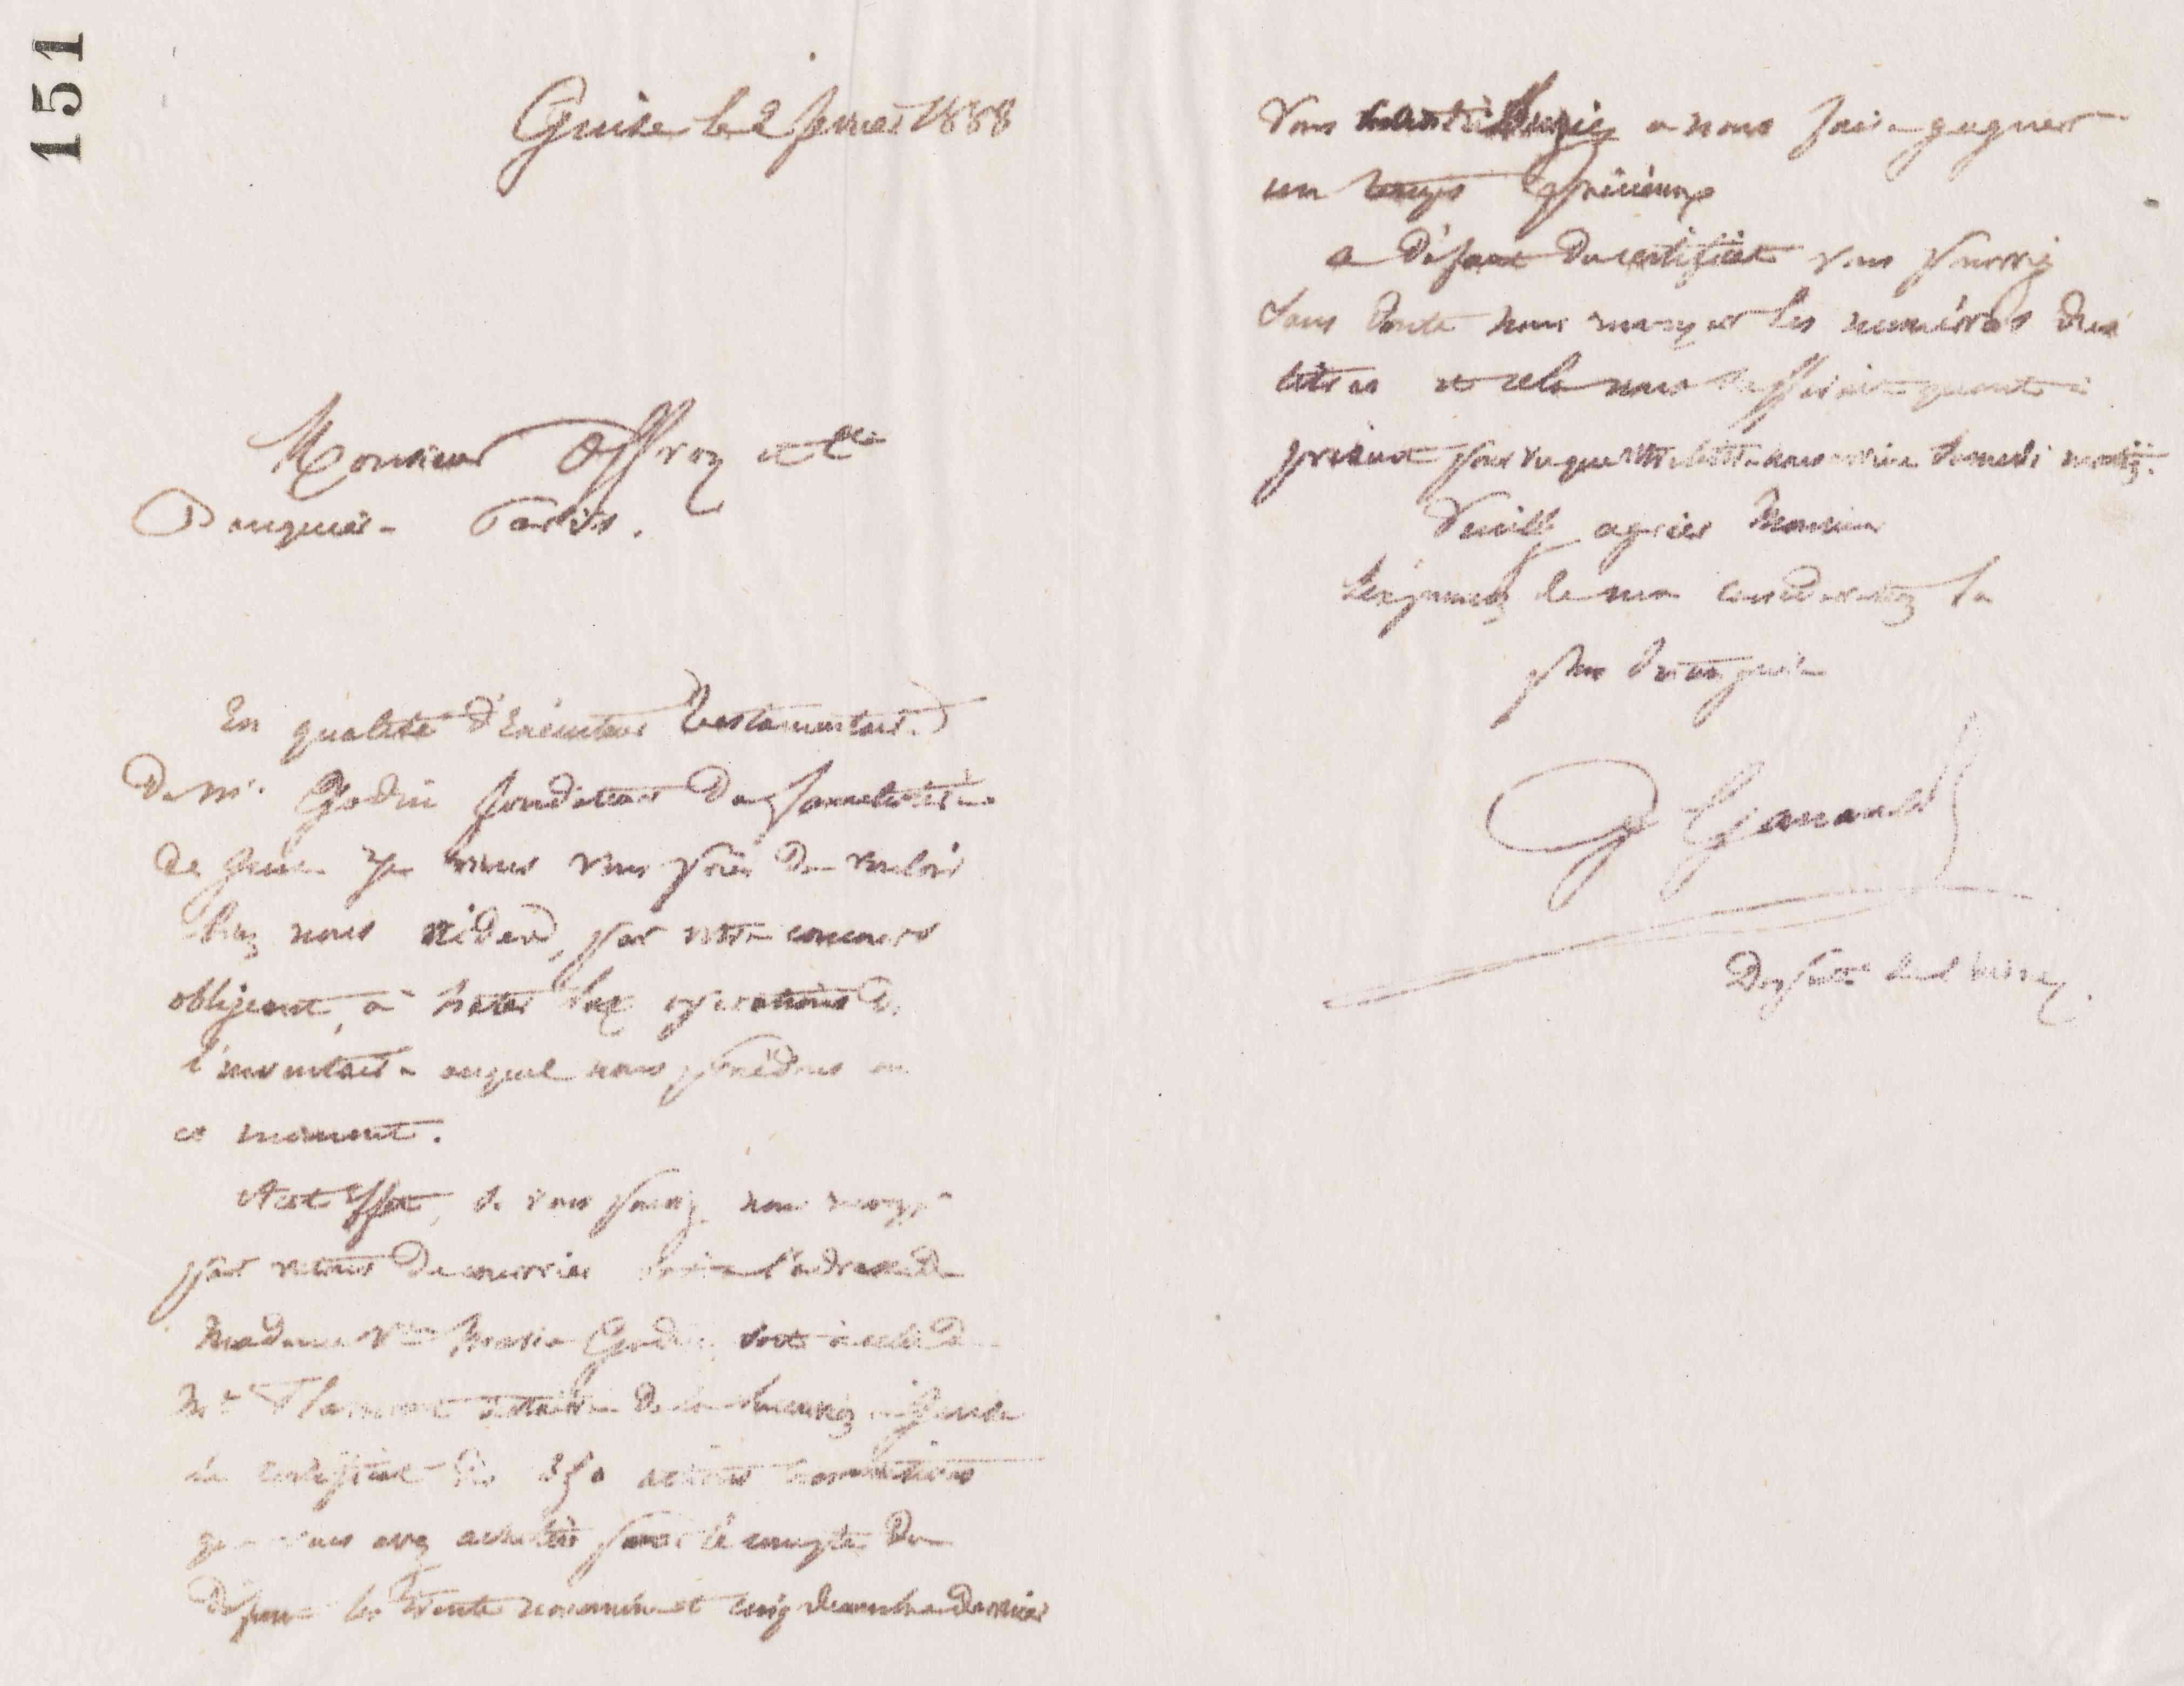 151
Guise le 2 février 1888
Monsieur Offroy et Cie
Banquier Paris.
En qualité d'Exécuteur Testamentaire
de Mr. Godin fondateur du familistère
de Guise je viens vous prier de vouloir
bien nous aider, par votre concours
obligeant, à hâter les opérations de
l'inventaire auquel nous procédons en
ce moment.
A cet effet, si vous pouviez nous envoyer
par retour du courrier soit à l'adresse de
Madame Vve Marie Godin, soit à celle de
Me Flamant notaire de la succession à Guise
le certificat des 250 actions
que vous avez achetées pour le compte du
défunt les trente novembre et cinq décembre dernier
Vous a nous faire gagner
un temps précieux
a défaut du certificat vous pourriez
sans doute nous envoyer les numéros des
titres et cela nous suffirait quant à
présent pourvu que votre lettre nous arrive samedi matin.
Veuillez agréer Monsieur
l'expression de ma considération la
plus distinguée
Ganault
Député de l'Aisne.